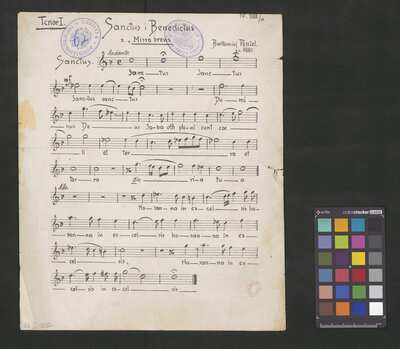 Tenor I.
Sanctus i Benedictus
z „Missa brevis
Bartłomiej Pękiel.
Sanctus.
Andante
Sanc — tus Sanc — tus
Sanctus sanc — tus Do — mi —
nus De — us Sa — ba — oth ple — ni sunt coe —
li et ter — ra et
ter — ra glo — ri — a tu — a
Allo
Ho — sanna in ex — cel — sis ho —
sanna in ex — cel — sis ho — sanna in ex —
cel — sis. Ho — sanna in ex —
cel — sis in excel — sis.